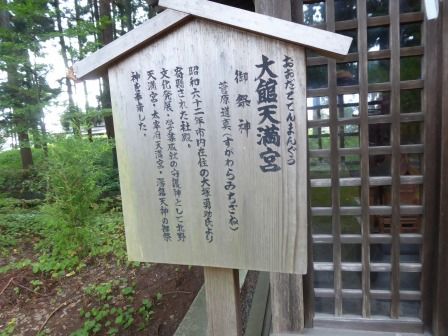 おおだててんまんぐう
大館天満宮
御祭神
菅原道真(すがわらみちざね)
昭和六十二年市内在住の大塚勇助氏より
寄贈された社殿。
文化発展・学業成就の守護神として北野
天満宮・太宰府天満宮・湯島天神の御祭
神を奉斎した。